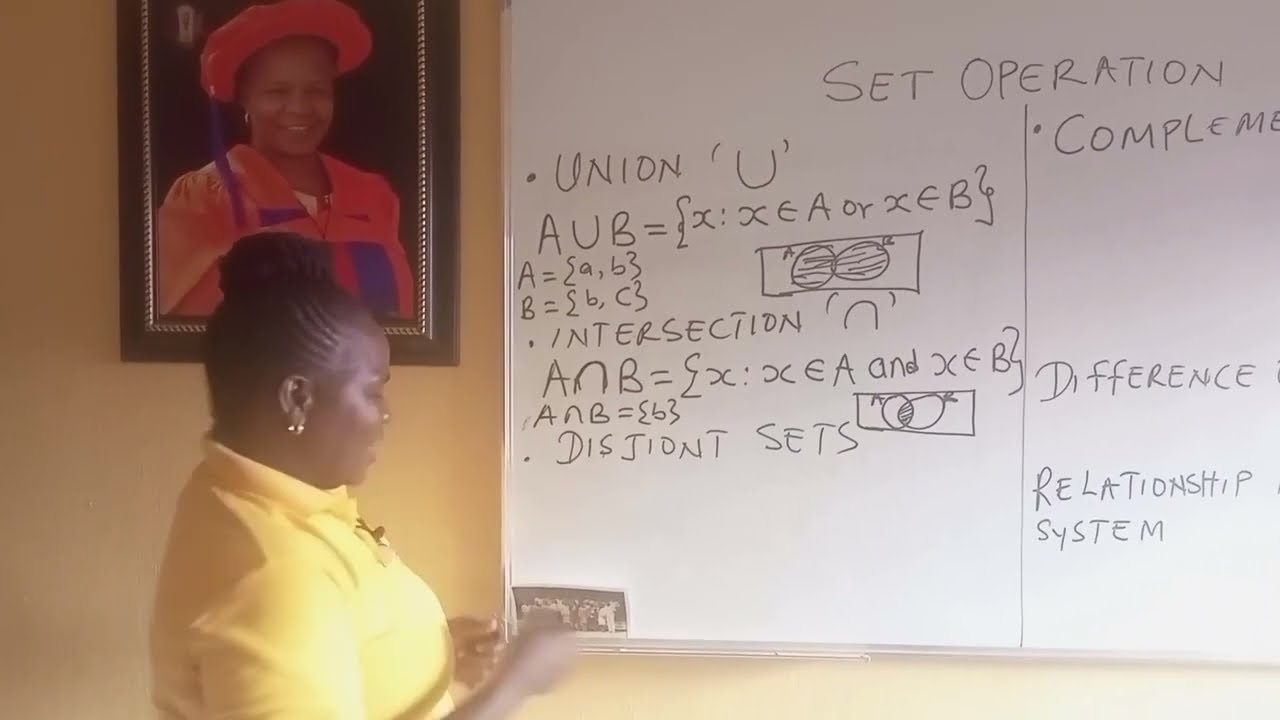 SET OPERATION
• UNION ‘∪’
A∪B={x: x∈A or x∈B}
A={a, b}
B={b, c}
A B
• INTERSECTION ‘∩’
A∩B={x: x∈A and x∈B}
A∩B={b}
A B
• DISJIONT SETS
• COMPLEME
DIFFERENCE
RELATIONSHIP
SYSTEM